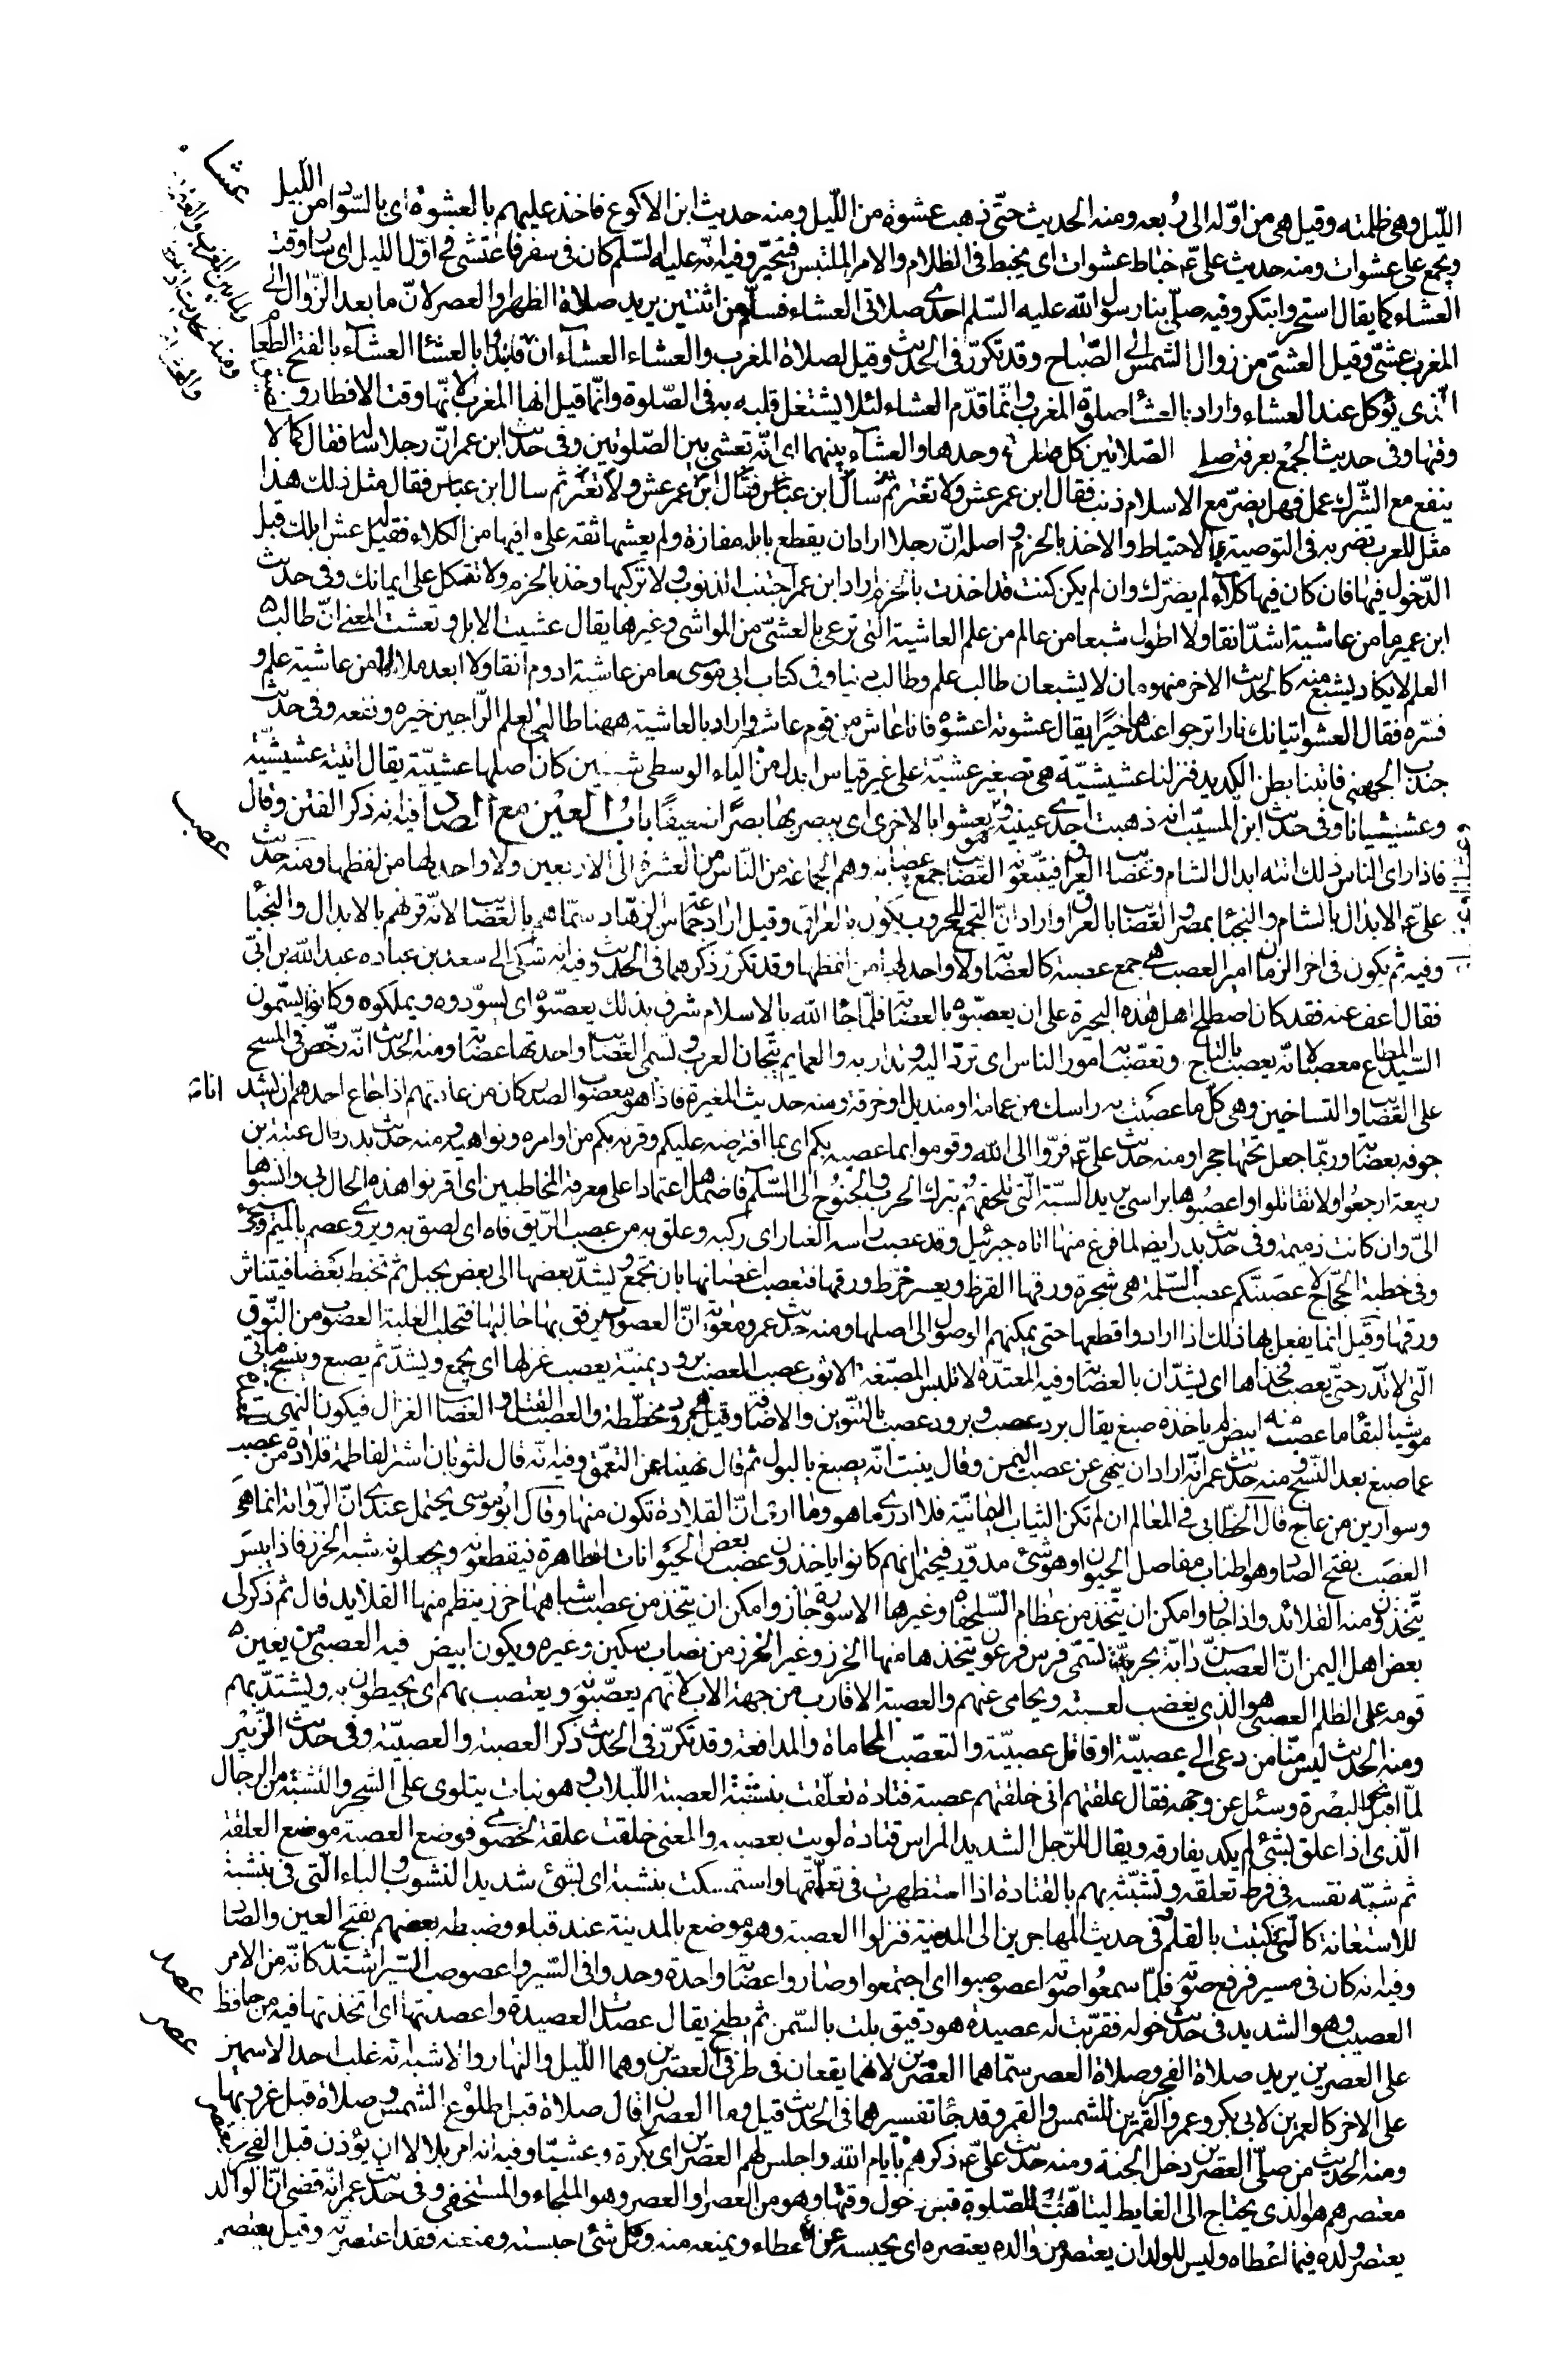 الليل وهى ظلمته وقيل هى من اوّله الى رُبعه ومنه الحديث حتّى ذهب عشوة من اللّيل ومنه حديث ابن الاكوع فاخذ عليهم بالعشوة اى بالسّواد من اللّيل
ويجمع على عشوات ومنه حديث علىّ ع خباط عشوات اى يخبط فى الظلام والامر الملتبس فيتحيّر وفيه انّه عليه السّلم كان فى سفر فاعتشى فى اوّل الليل اى سار وقت
العشاء كما يقال استحر وابتكر وفيه صلّى بنا رسول الله عليه السّلم احدى صلاتى العشاء فسلّم من اثنتين يريد صلاة الظهر او العصر لانّ ما بعد الزّوال الى
المغرب عشىّ وقيل العشىّ من زوال الشمس الى الصّباح وقد تكرّر فى الحديث وقيل لصلاة المغرب والعشاء العشاآن فابدؤا بالعشاء العشآء بالفتح الطّعام
الّذى يؤكل عند العشاء واراد بالعشاء صلوة المغرب وانّما قدّم العشاء لئلا يشتغل قلبه به فى الصّلوة وانّما قيل انها المغرب لانّها وقت الافطار و
وقتها وفى حديث الجمع بعرفة صلى الصّلاتين كل صلوة وحدها والعشآء بينهما اى انّه تعشى بين الصّلوتين وفى حديث ابن عمر انّ رجلا ساله فقال كما لا
ينفع مع الشّرك عمل فهل يضرّ مع الاسلام ذنب فقال ابن عمر عش ولا تغتر ثم سال ابن عباس فقال مثل ذلك هذا
مثل للعرب تضربه فى التوصية بالاحتياط والاخذ بالحزم و اصله انّ رجلا اراد ان يقطع بابله مفازة ولم يعشها ثقة على ما فيها من الكلاء فقيل له عش ابلك قبل
الدّخول فيها فان كان فيها كلاء لم يضرّك وان لم يكن كنت قد اخذت بالحزم اراد ابن عمر اجتنب الذنوب ولا تركبها وخذ بالحزم ولا تتكل على ايمانك وفى حديث
ابن عمير ما من عاشية اشدّ انقا ولا اطول شبعا من عالم من علم العاشية التى ترعى بالعشىّ من المواشى وغيرها يقال عشيت الابل وتعشت المعنى انّ طالب
العلم لا يكاد يشبع منه كالحديث الاخر منهومان لا يشبعان طالب علم وطالب دنيا وفى كتاب ابى موسى ما من عاشية ادوم انقا ولا ابعد ملالا من عاشية علم و
فسّره فقال العشو اتيانك نارا ترجوا عندها خيرًا يقال عشوته اعشوه فانا عاش من قوم عاشية واراد بالعاشية ههنا طالبى العلم الرّاجين خيره ونفعه وفى حديث
جندب الجهنى فاتينا بطن الكديد فنزلنا عشيشيّة هى تصغير عشيّة على غير قياس ابدل من الياء الوسطى شين كان اصلها عشييّة يقال اتيته عشيشيّة
وعشيشيانا وفى حديث ابن المسيّب انه ذهبت احدى عينيه وهو يعشوا بالاخرى اى يبصر بها بصرًا ضعيفًا باب العين مع الصاد فيه انه ذكر الفتن وقال
فاذا راى الناس ذلك اتته ابدال الشام وعصايب العراق فيتبعونه العصايب جمع عصابة وهم الجماعة من النّاس من العشرة الى الاربعين ولا واحد لها من لفظها ومنه حديث
علىّ ع الابدال بالشام والنجباء بمصر والعصايب بالعراق اراد انّ التجمّع للحروب يكون بالعراق وقيل اراد جماعة من الزهّاد سمّاهم بالعصايب لانّه قرنهم بالابدال والنجباء
وفيه ثم يكون فى اخر الزمان امير العصب هى جمع عصبة كالعصابة ولا واحد لها من لفظها وقد تكرّر ذكرهما فى الحديث وفيه انه شكى الى سعد بن عبادة عبد الله بن ابىّ
فقال اعف عنه فقد كان اصطلح اهل هذه البحيرة على ان يعصبوه بالعصابة فلمّا جاء الله بالاسلام شرق بذلك يعصّبوه اى يسوّدوه ويملكوه وكانوا يسمون
السّيد المطاع معصبا لانّه يعصب بالتاج وتعصّب به امور الناس اى تردّ اليه وتدار به والعمايم تيجان العرب وتسمى العصايب واحدتها عصابة ومنه الحديث انّه رخّص فى المسح
على العصايب والتساخين وهى كلّ ما عصبت به راسك من عمامة او منديل او خرقة ومنه حديث المغيرة فاذا هو معصوب الصدر كان من عادتهم اذا جاع احدهم ان يشد
جوفه بعصابة وربّما جعل تحتها حجرا ومنه حديث علىّ ع فرّوا الى الله وقوموا بما عصبه بكم اى بما افترضه عليكم وقرنه بكم من اوامره ونواهيه ومنه حديث بدر قال عتبة بن
ربيعة ارجعوا ولا تقاتلوا واعصبوها براسى يريد السبّة الّتى تلحقهم بترك الحرب والجنوح الى السّلم فاضمرها اعتمادا على معرفة المخاطبين اى اقرنوا هذه الحال بى وانسبوها
الىّ وان كانت ذميمة وفى حديث بدر ايضا لما فرغ منها اتاه جبرئيل وقد عصب راسه الغبار اى ركبه وعلق به من عصب الرّيق فاه اى لصق به ويروى عصم بالميم
وفى خطبة الحجّاج لاعصبنّكم عصب السّلمة هى شجرة ورقها القرظ ويعسر خرط ورقها فتعصب اغصانها بان تجمع ويشدّ بعضها الى بعض بحبل ثم تخبط بعصا فيتناثر
ورقها وقيل انما يفعل بها ذلك اذا ارادوا قطعها حتى يمكنهم الوصول الى اصلها ومنه حديث عمرو ومعوية انّ العصوب يرفق بها حالبها فتحلب العلبة العصوب من النّوق
الّتى لا تدرّ حتى يعصب فخذاها اى يشدّان بالعصابة وفيه المعتدّة لا تلبس المصبّغة الا ثوب عصب العصب برود يمنيّة يعصب غزلها اى يجمع ويشدّ ثم يصبغ وينسج فياتى
موشيا لبقاء ما عصب منه ابيض لم ياخذه صبغ يقال برد عصب وبرود عصب بالتّنوين والاضافة وقيل هى برود مخطّطة والعصب الفتل والعصاب الغزال فيكون النهى
عما صبغ بعد النّسج ومنه حديث عمر انّه اراد ان ينهى عن عصب اليمن وقال نبئت انّه يصبغ بالبول ثم قال نهينا عن التعمّق وفيه انّه قال لثوبان اشتر لفاطمة قلادة من عصب
وسوارين من عاج قال الخطّابى فى المعالم ان لم تكن الثياب اليمانيّة فلا ادرى ما هو وما ارى انّ القلادة تكون منها وقال ابو موسى يحتمل عندى انّ الرّواية انما هى
العصَب بفتح الصاد وهو اطناب مفاصل الحيوان وهو شئ مدوّر فيحتمل انهم كانوا ياخذون عصب بعض الحيوانات الطاهرة فيقطعونه ويجعلونه شبه الخرز فاذا يبسَ
يتّخذون منه القلائد واذا جاز وامكن ان يتّخذ من عظام السّلحفاة وغيرها الاسورة جاز وامكن ان يتّخذ من عصب اشباهها خرز ينظم منها القلايد قال ثم ذكر لى
بعض اهل اليمن انّ العصب سنّ دابّة بحريّة تسمّى فرس فرعون يتّخذ منها الخرز وغير الخرز من نصاب سكين وغيره ويكون ابيض فيه العصبى من يعين
قومه على الظلم العصبى هو الذى يغضب لعصبته ويحامى عنهم والعصبة الاقارب من جهة الاب لانّهم يعصّبونه ويعتصب بهم اى يحيطون به ويشتدّ بهم
ومنه الحديث ليس منّا من دعى الى عصبيّة او قاتل عصبيّة والتعصّب المحاماة والمدافعة وقد تكرّر فى الحديث ذكر العصبة والعصبيّة وفى حديث الزّبير
لمّا اقبل نحو البصرة وسئل عن وجهه فقال علقتهم انى خلقتهم عصبة قتادة تعلّقت بنشبة العصبة اللّبلاب وهو نبات يتلوى على الشجر والنّشبة من الرجال
الّذى اذا علق بشئ لم يكد يفارقه ويقال للرّجل الشديد المراس قتادة لويت بعصبة والمعنى خلقت علقة لخصومى فوضع العصبة موضع العلقة
ثم شبّه نفسه فى فرط تعلقه وتشبّثه بهم بالقتادة اذا استظهرت فى تعلّقها واستمسكت بنشبة اى بشئ شديد النشوب والباء الّتى فى بنشبة
للاستعانة كالّتى فى كتبت بالقلم وفى حديث المهاجرين الى المدينة فنزلوا العصبة وهو موضع بالمدينة عند قباء وضبطه بعضهم بفتح العين والصّاد
وفيه انه كان فى مسير فرفع صوته فلمّا سمعوا صوته اعصوصبوا اى اجتمعوا وصاروا عصابة واحدة وجدوا فى السّير واعصوصب السّير اشتدّ كانّه من الامر
العصيب وهو الشديد فى حديث خولة فقرّبت له عصيدة هو دقيق يلت بالسّمن ثم يطبخ يقال عصدت العصيدة واعصدتها اى اتخذتها فيه من حافظ
على العصرين يريد صلاة الفجر وصلاة العصر سمّاهما العصرين لانهما يقعان فى طرفى العصرين وهما اللّيل والنهار والاشبه انّه غلب احد الاسمين
على الاخر كالعمرين لابى بكر وعمر والقمرين للشمس والقمر وقد جاء تفسيرهما فى الحديث قيل وما العصران قال صلاة قبل طلوع الشمس وصلاة قبل غروبها
ومنه الحديث من صلّى العصرين دخل الجنة ومنه حديث علىّ ع ذكرهم بايام الله واجلس لهم العصرين اى بكرة وعشيّا وفيه انه امر بلالا ان يؤذن قبل الفجر ليعتصر
معتصرهم هو الذى يحتاج الى الغايط ليتاهّب للصّلوة قبل دخول وقتها وهو من العصر او العصر وهو الملجاء والمستخفى وفى حديث عمر انّه قضى انّ الوالد
يعتصر ولده فيما اعطاه وليس للولد ان يعتصر من والده يعتصره اى يحبسه عن الاعطاء ويمنعه منه وكل شئ حبسته ومنعته فقد اعتصرته وقيل يعتصر
عصب
عصد
عصر